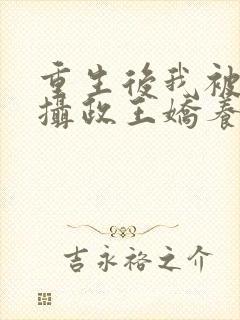 重生後我被
攝政王嬌養
吉永裕之介